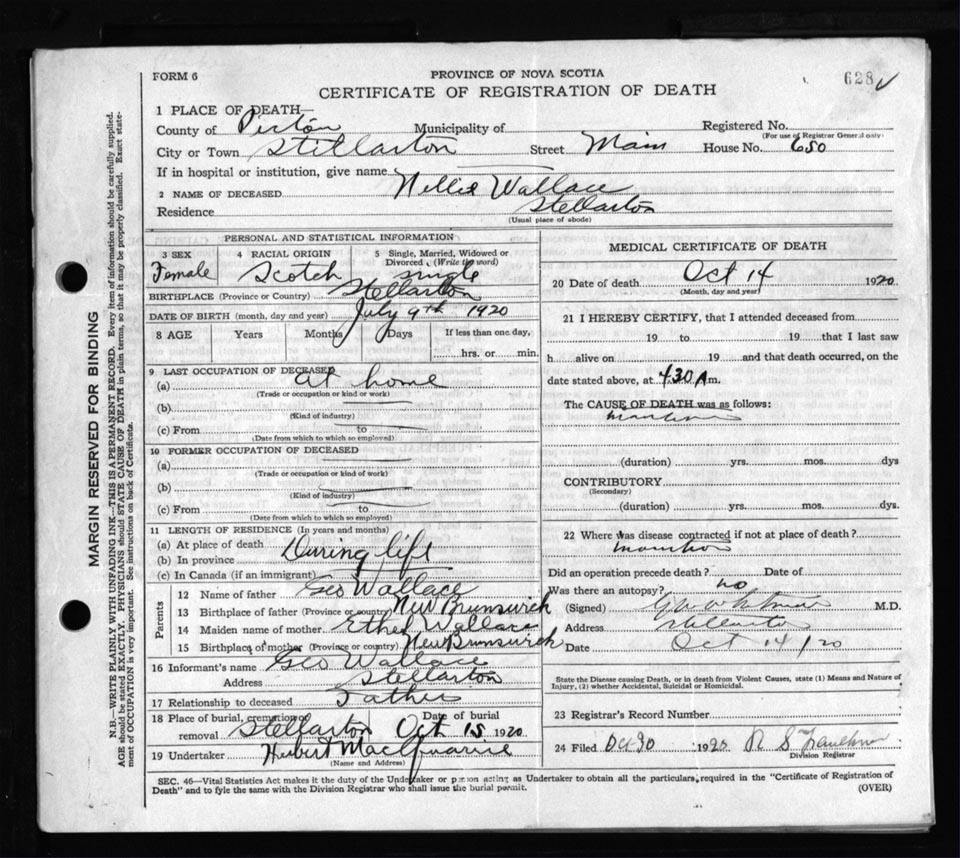 FORM 6
PROVINCE OF NOVA SCOTIA
628
CERTIFICATE OF REGISTRATION OF DEATH
1 PLACE OF DEATH—
County of Pictou Municipality of Registered No.
(For use of Registrar General only)
City or Town Stellarton Street Main House No. 650
If in hospital or institution, give name
2 NAME OF DECEASED Nellie Wallace
Residence Stellarton
(Usual place of abode)
PERSONAL AND STATISTICAL INFORMATION
3 SEX Female
4 RACIAL ORIGIN Scotch
5 Single, Married, Widowed or Divorced (Write the word) single
BIRTHPLACE (Province or Country) Stellarton
DATE OF BIRTH (month, day and year) July 9th 1920
8 AGE Years Months Days If less than one day, hrs. or min.
9 LAST OCCUPATION OF DECEASED
(a) at home
(Trade or occupation or kind of work)
(b)
(Kind of industry)
(c) From to
(Date from which to which so employed)
10 FORMER OCCUPATION OF DECEASED
(a)
(Trade or occupation or kind of work)
(b)
(Kind of industry)
(c) From to
(Date from which to which so employed)
11 LENGTH OF RESIDENCE (In years and months)
(a) At place of death During life
(b) In province
(c) In Canada (if an immigrant)
Parents
12 Name of father Geo Wallace
13 Birthplace of father (Province or country) New Brunswick
14 Maiden name of mother Ethel Wallace
15 Birthplace of mother (Province or country) New Brunswick
16 Informant's name Geo Wallace
Address Stellarton
17 Relationship to deceased Father
18 Place of burial, cremation or removal Stellarton Date of burial Oct 15 1920
19 Undertaker Hubert MacQuarrie
(Name and Address)
MEDICAL CERTIFICATE OF DEATH
20 Date of death Oct 14 1920
(Month, day and year)
21 I HEREBY CERTIFY, that I attended deceased from
19 to 19 that I last saw
h alive on 19 and that death occurred, on the
date stated above, at 4.30 A m.
The CAUSE OF DEATH was as follows:
(duration) yrs. mos. dys
CONTRIBUTORY
(Secondary)
(duration) yrs. mos. dys
22 Where was disease contracted if not at place of death?
Did an operation precede death? Date of
Was there an autopsy? no
(Signed) M.D.
Address Stellarton
Date Oct 14/20
State the Disease causing Death, or in death from Violent Causes, state (1) Means and Nature of
Injury, (2) whether Accidental, Suicidal or Homicidal.
23 Registrar's Record Number
24 Filed 192
Division Registrar
SEC. 46—Vital Statistics Act makes it the duty of the Undertaker or person acting as Undertaker to obtain all the particulars required in the "Certificate of Registration of
Death" and to fyle the same with the Division Registrar who shall issue the burial permit.
(OVER)
MARGIN RESERVED FOR BINDING
N.B.—WRITE PLAINLY WITH UNFADING INK—THIS IS A PERMANENT RECORD. Every item of information should be carefully supplied.
AGE should be stated EXACTLY. PHYSICIANS should STATE CAUSE OF DEATH in plain terms, so that it may be properly classified. Exact state-
ment of OCCUPATION is very important. See instructions on back of Certificate.